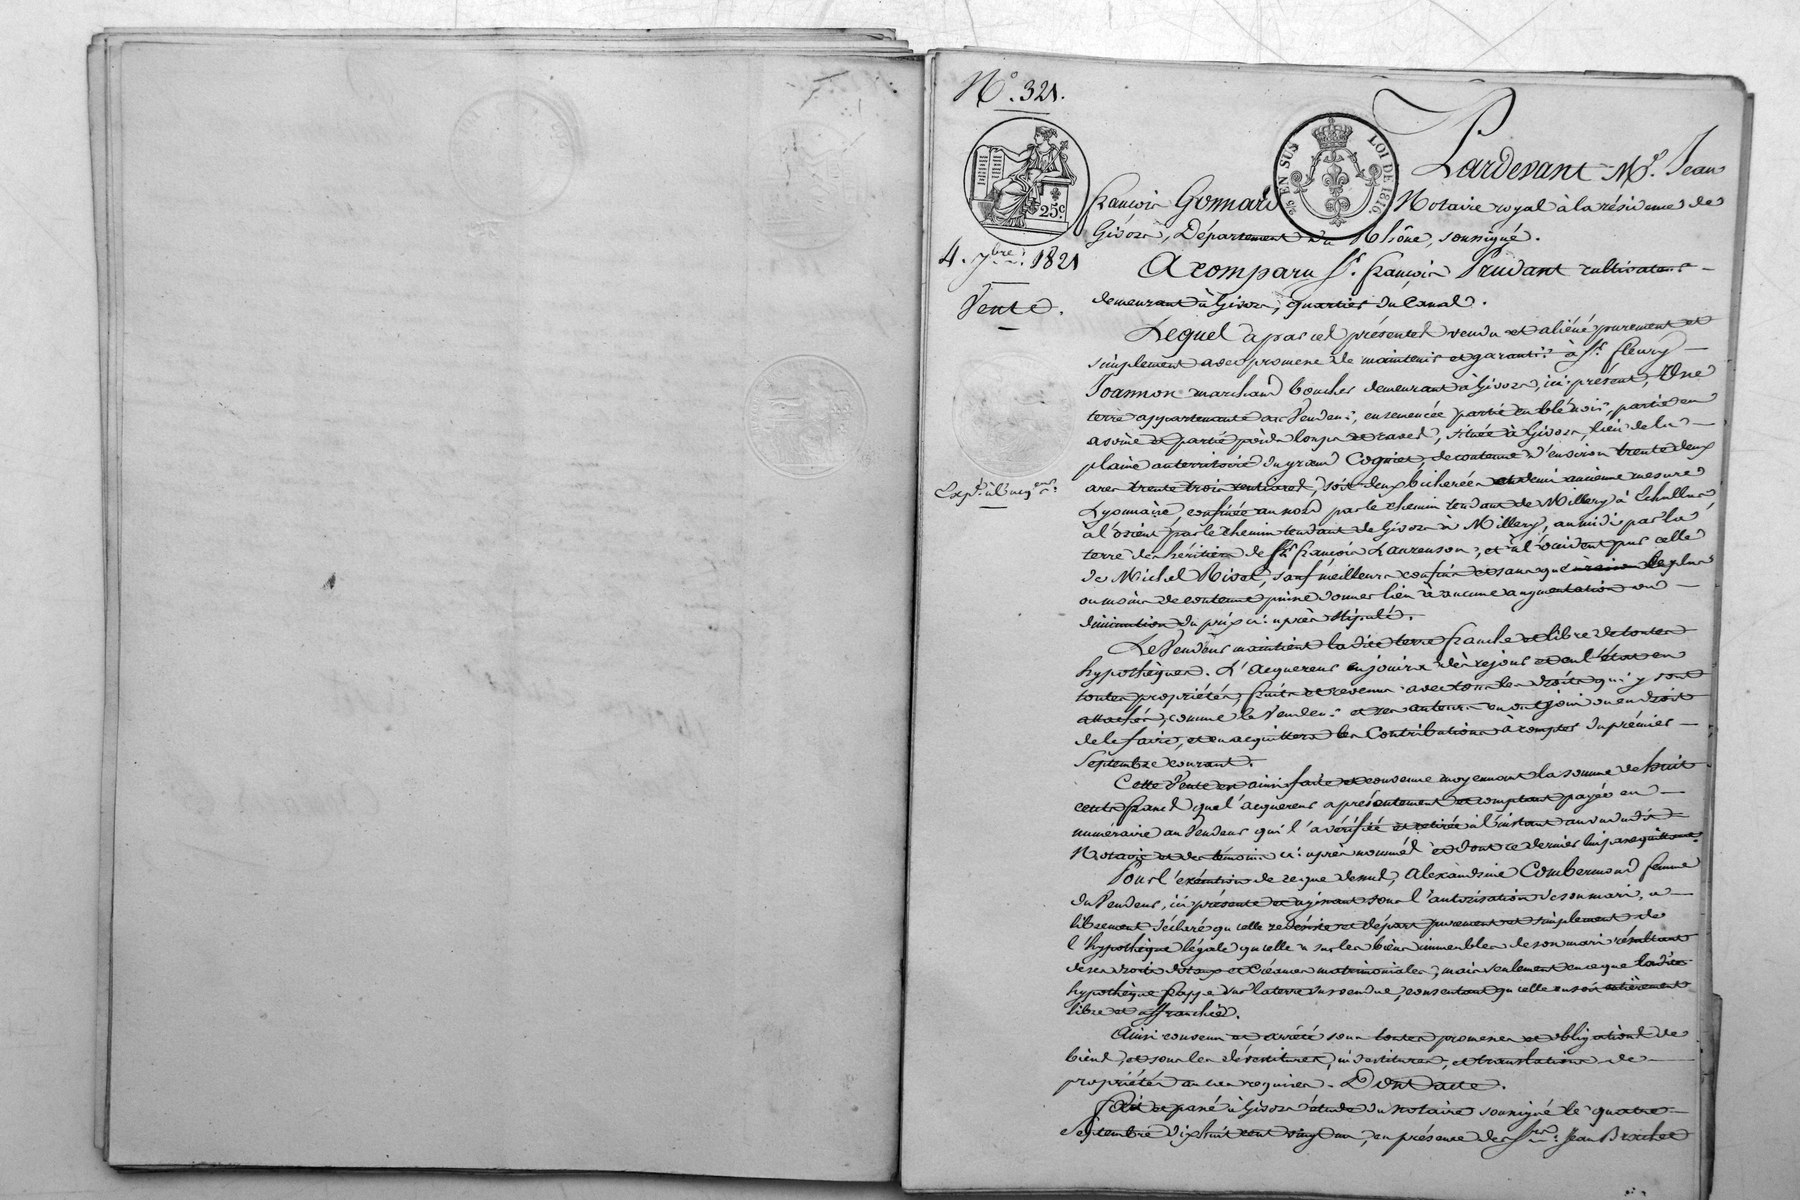 N.° 321.
25c
EN SUS LOI DE 1816.
4. 7bre. 1821
Vente.
Pardevant M.e Jean
françois Gonnard Notaire royal à la résidence de
Givors, Département du Rhône, soussigné.
A comparu S.r françois Prudant cultivateur
demeurant à Givors, quartier du Canal.
Lequel a par ces présentes vendu et aliéné purement et
simplement avec promesse de maintenir et garantir à S.r fleury
Joannon marchand boucher demeurant à Givors, ici présent, Une
terre appartenante au Vendeur, ensemencée partie en blé noir, partie en
avoine et partie en raves, située à Givors, lieu de la
plaine au territoire du grand Cogniet, de contenue d'environ trente deux
ares trente trois centiares, soit deux bicherées et demi ancienne mesure
Lyonnaise, confinée au nord par le chemin tendant de Millery à Echallas
à l'orient par le chemin tendant de Givors à Millery, au midi par la
terre des héritiers de S.r françois Laurenson, et à l'occident par celle
de Michel Rivat, sauf meilleurs confins et sans que le plus
ou moins de contenue puisse donner lieu à aucune augmentation ou
diminution du prix ci-après stipulé.
Le Vendeur maintient ladite terre franche et libre de toutes
hypothèques. L'acquéreur en jouira dès ce jour et en l'état en
toutes propriétés, fruits et revenus avec tous les droits qui y sont
attachés, comme le Vendeur et ses auteurs en ont joui ou eu droit
de le faire, et en acquittera les Contributions à compter du premier
Septembre courant.
Cette Vente est ainsi faite et convenue moyennant la somme de huit
cents francs que l'acquéreur a présentement et comptant payée en
numéraire au Vendeur qui l'a vérifiée et retirée à l'instant au vu dudit
Notaire et des témoins ci-après nommés et dont ce dernier lui passe quittance.
Pour l'exécution de ce que dessus, Alexandrine Combermond femme
du Vendeur, ici présente et agissant sous l'autorisation de son mari, a
librement déclaré qu'elle se désiste et départ purement et simplement de
l'hypothèque légale qu'elle a sur les biens immeubles de son mari résultant
de ses droits dotaux et Créances matrimoniales, mais seulement en ce que ladite
hypothèque frappe sur la terre sus vendue, consentant qu'elle en soit entièrement
libre et affranchie.
Ainsi convenu et arrêté sous toutes promesses et obligations de
biens, et sous les dévestitures, investitures, et translations de
propriétés au cas requises. Dont acte.
fait et passé à Givors étude du notaire soussigné le quatre
Septembre dix huit cent vingt un, en présence des S.rs Jean Brachet